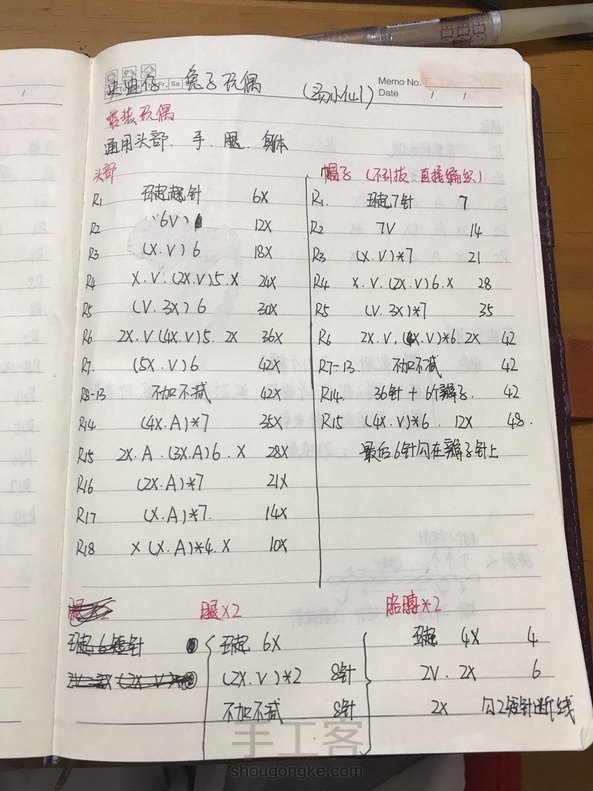 Memo No.
Date
兔子玩偶 (汤小仙)
套装玩偶
通用头部、手、腿、身体
头部
R1 环起起针 6X
R2 (6V) 12X
R3 (X.V)6 18X
R4 X.V.(2X.V)5.X 24X
R5 (V.3X)6 30X
R6 2X.V(4X.V)5.2X 36X
R7. (5X.V)6 42X
R8-13 不加不减 42X
R14 (4X.A)*7 35X
R15 2X.A.(3X.A)6.X 28X
R16 (2X.A)*7 21X
R17 (X.A)*7. 14X
R18 X(X.A)*4.X 10X
帽子(不引拔 直接编织)
R1 环起7针 7
R2 7V 14
R3 (X.V)*7 21
R4 X.V.(2X.V)6.X 28
R5 (V.3X)*7 35
R6 2X.V.(4X.V)*6.2X 42
R7-13 不加不减 42
R14. 36针+6个辫子. 42
R15 (4X.V)*6.12X 48.
最后6针勾在辫子针上
腿X2
环起 6X
(2X.V)*2 8针
不加不减 8针
胳膊*2
环起 4X 4
2V.2X 6
2X 勾2短针断线
手工客
shougongke.com